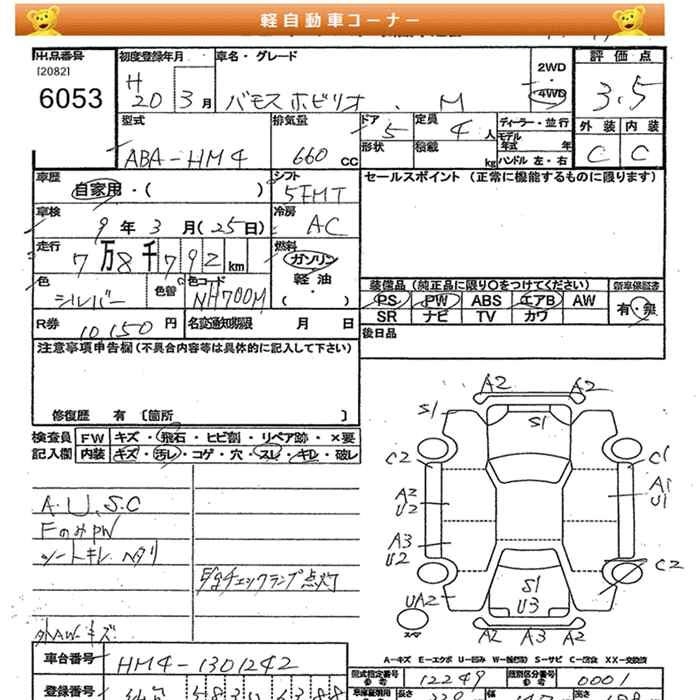 軽自動車コーナー
出品番号 初度登録年月 車名・グレード 評価点
[2082] H 2WD
6053 20 3月 バモスホビリオ M 4WD 3.5
型式 排気量 ドア 定員 ディーラー・並行 外装 内装
ABA-HM4 660 cc 5 4人 モデル年式 年 C C
形状 積載 kg ハンドル 左・右
車歴 シフト セールスポイント (正常に機能するものに限ります)
自家用・( ) 5FMT
車検 冷房
9年3月(25日) AC
走行 燃料
7万8千792km ガソリン
色 色替 色コード 軽油 装備品 (純正品に限り○をつけてください) 新車保証書
シルバー NH700M ・( ) PS PW ABS エアB AW 有・無
SR ナビ TV カワ
R券 10150円 名変通知期限 月 日 後日品
注意事項申告欄(不具合内容等は具体的に記入して下さい)
修復歴 有 [箇所 ]
検査員 FW キズ・飛石・ヒビ割・リペア跡・×要
記入欄 内装 キズ・汚レ・コゲ・穴・スレ・キレ・破レ
A2 A2
S1 S1
C2 C1
A2 U2 A1 U1
A3 U2
C2
UA2 S1 U3
A2 A3 A2
A.U.S.C
FのみPW
シートキレ ヘタリ
チェックランプ点灯
外AWキズ
A-キズ E-エクボ U-凹み W-(補修跡) S-サビ C-腐食 XX-交換済
車台番号 HM4-1301242
型式指定番号 12249 類別区分番号 0001
登録番号